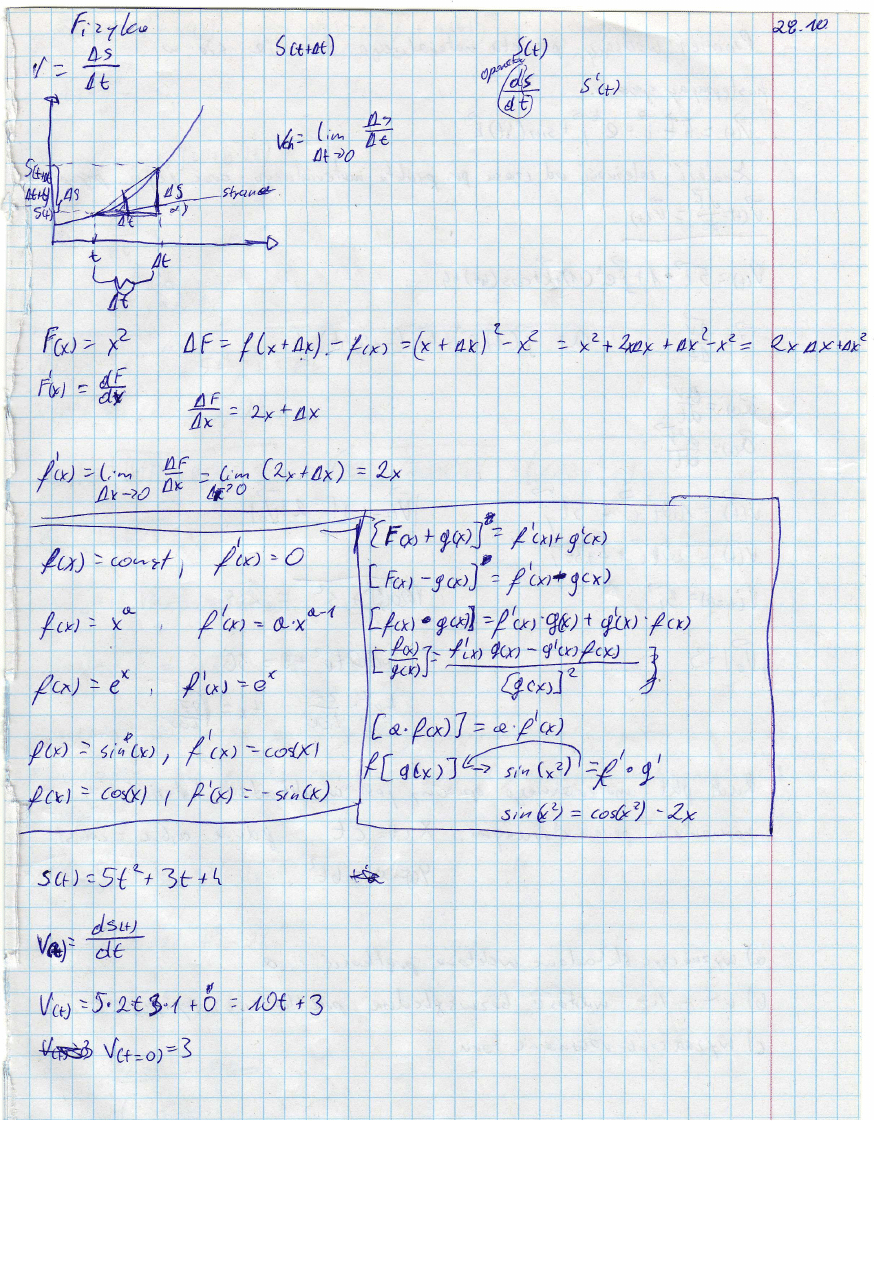 Fizyka
28.10
V = ΔS/Δt
S(t+Δt)
S(t)
ds/dt
S'(t)
Vch = lim Δt→0 ΔS/Δt
S(t)
ΔS
ΔS
Δt
t
Δt
Δt
F(x) = x²
ΔF = f(x+Δx) - f(x) = (x+Δx)² - x² = x² + 2xΔx + Δx² - x² = 2xΔx + Δx²
F'(x) = dF/dx
ΔF/Δx = 2x + Δx
f'(x) = lim Δx→0 ΔF/Δx = lim Δx→0 (2x+Δx) = 2x
f(x) = const, f'(x) = 0
f(x) = x^a, f'(x) = a·x^(a-1)
f(x) = e^x, f'(x) = e^x
f(x) = sin(x), f'(x) = cos(x)
f(x) = cos(x), f'(x) = -sin(x)
[F(x) + g(x)]' = f'(x) + g'(x)
[F(x) - g(x)]' = f'(x) - g(x)
[f(x) · g(x)] = f'(x)·g(x) + g'(x)·f(x)
[f(x)/g(x)] = f'(x) g(x) - g'(x) f(x) / [g(x)]²
[a·f(x)] = a·f'(x)
f[g(x)] → sin(x²) = f'·g'
sin(x²) = cos(x²) - 2x
S(t) = 5t² + 3t + 4
V(t) = ds(t)/dt
V(t) = 5·2t 3·1 + 0 = 10t + 3
V(t=0) = 3